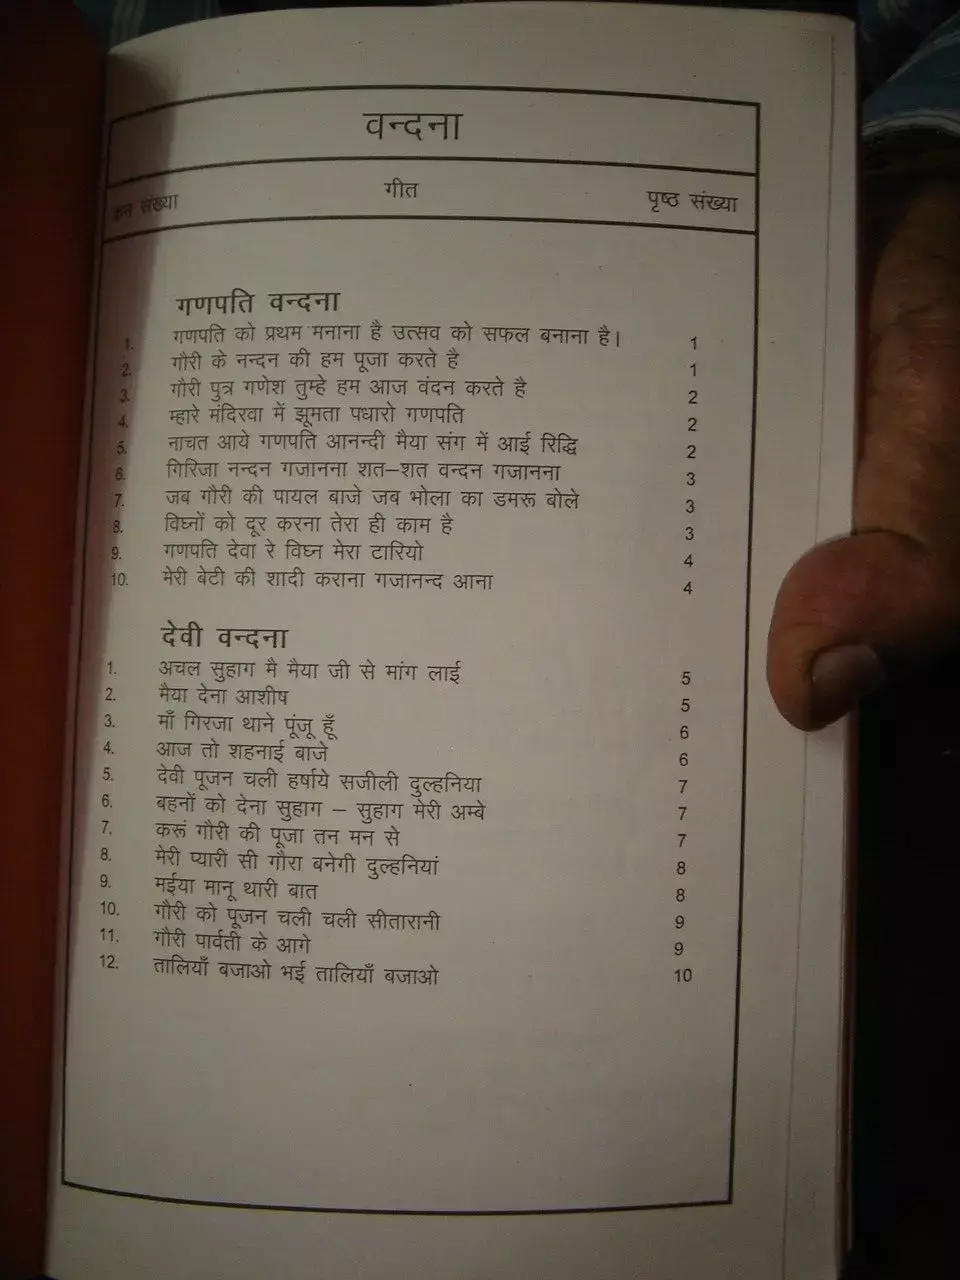 वन्दना
क्रम संख्या गीत पृष्ठ संख्या
गणपति वन्दना
1. गणपति को प्रथम मनाना है उत्सव को सफल बनाना है। 1
2. गौरी के नन्दन की हम पूजा करते है 1
3. गौरी पुत्र गणेश तुम्हे हम आज वंदन करते है 2
4. म्हारे मंदिरवा में झूमता पधारो गणपति 2
5. नाचत आये गणपति आनन्दी मैया संग में आई रिद्धि 2
6. गिरिजा नन्दन गजानना शत–शत वन्दन गजानना 3
7. जब गौरी की पायल बाजे जब भोला का डमरू बोले 3
8. विघ्नों को दूर करना तेरा ही काम है 3
9. गणपति देवा रे विघ्न मेरा टारियो 4
10. मेरी बेटी की शादी कराना गजानन्द आना 4
देवी वन्दना
1. अचल सुहाग मै मैया जी से मांग लाई 5
2. मैया देना आशीष 5
3. माँ गिरजा थाने पूंजू हूँ 6
4. आज तो शहनाई बाजे 6
5. देवी पूजन चली हर्षाये सजीली दुल्हनिया 7
6. बहनों को देना सुहाग – सुहाग मेरी अम्बे 7
7. करूं गौरी की पूजा तन मन से 7
8. मेरी प्यारी सी गौरा बनेगी दुल्हनियां 8
9. मईया मानू थारी बात 8
10. गौरी को पूजन चली चली सीतारानी 9
11. गौरी पार्वती के आगे 9
12. तालियाँ बजाओ भई तालियाँ बजाओ 10